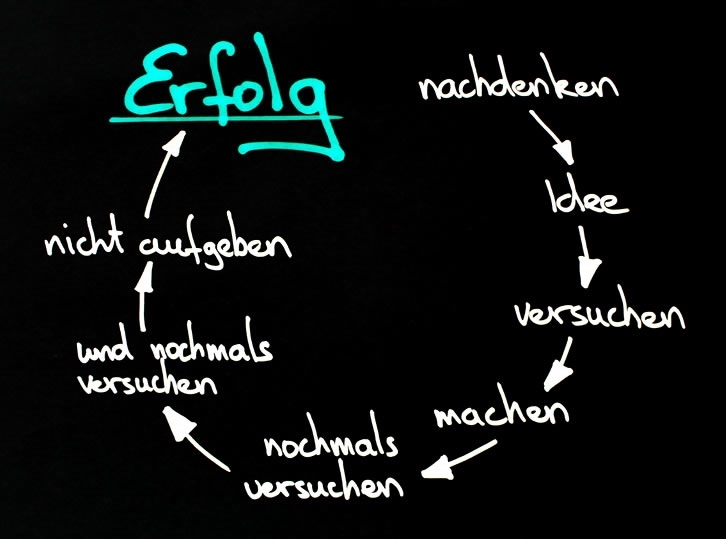 Erfolg
nachdenken
Idee
versuchen
machen
nochmals
versuchen
und nochmals
versuchen
nicht aufgeben